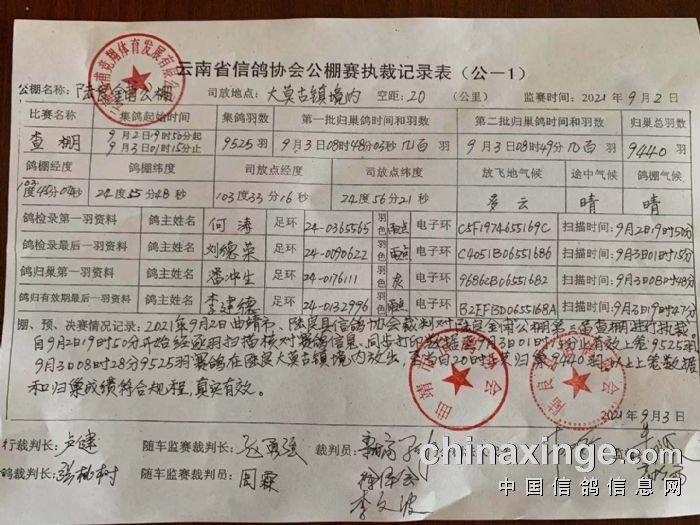 云南省信鸽协会公棚赛执裁记录表（公—1）
公棚名称：陆良金甫公棚 司放地点：大莫古镇境内 空距：20（公里） 监赛时间：2021年9月2日
比赛名称 集鸽起始时间 集鸽羽数 第一批归巢鸽时间和羽数 第二批归巢鸽时间和羽数 归巢总羽数
查棚 9月2日19时50分起 9月3日01时15分止 9525羽 9月3日08时48分03秒几百羽 9月3日08时49分几百羽 9440羽
鸽棚经度 鸽棚纬度 司放点经度 司放点纬度 放飞地气候 途中气候 鸽棚气候
103度45分04秒 24度55分48秒 103度33分16秒 24度56分21秒 多云 晴 晴
鸽检录第一羽资料 鸽主姓名 何涛 足环 24-0365565 羽色 雨点 电子环 C5F1974655169C 扫描时间：9月2日19时50分
鸽检录最后一羽资料 鸽主姓名 刘德荣 足环 24-0090622 羽色 雨点 电子环 C4051B06551686 扫描时间：9月3日01时15分
鸽归巢第一羽资料 鸽主姓名 潘冲生 足环 24-0176111 羽色 灰 电子环 9686CB06551682 扫描时间：9月3日08时48分
鸽归有效期最后一羽资料 鸽主姓名 李建德 足环 24-0132996 羽色 雨点 电子环 B2EFBD0655168A 扫描时间：9月3日19时47分
棚、预、决赛情况记录：2021年9月2日曲靖市、陆良县信鸽协会裁判对陆良金甫公棚第三届查棚进行执裁
月2日19时50分开始经逐羽扫描核对赛鸽信息、同步打印数据至9月3日01时15分止有效上笼9525羽
9月3日08时28分9525羽赛鸽在陆良大莫古镇境内放出，至当日20时止共归巢9440羽，以上上笼数据
和归巢成绩符合规程，真实有效。
2021年9月3日
行裁判长：卢健 随车监赛裁判长：赵勇强 裁判员：
鸽裁判长：张桃树 随车监赛裁判员：周霖
李文波
chinaxinge.com
中国信鸽信息网